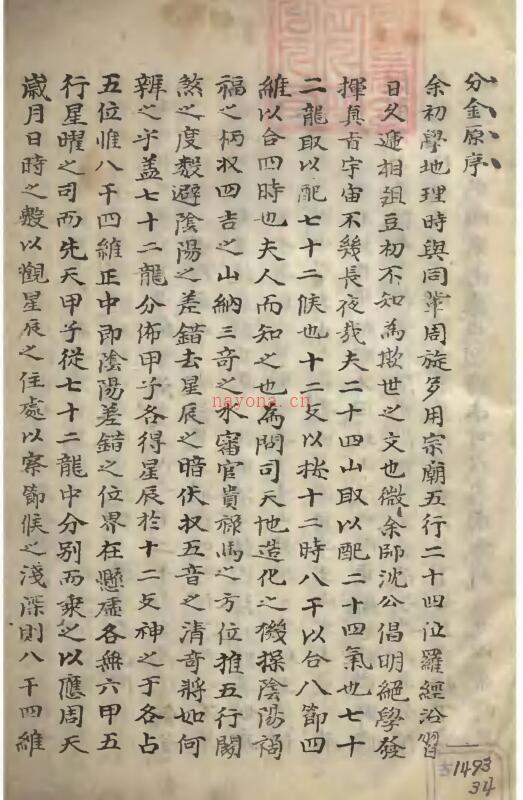 分金原序
余初學地理時與同輩周旋多用宗廟五行二十四位羅經沿習
日久遞相俎豆初不知為欺世之文也微余師沈公倡明絕學發
揮真旨宇宙不幾長夜哉夫二十四山取以配二十四氣也七十
二龍取以配七十二候也十二支以按十二時八干以合八節四
維以合四時也夫人而知之也為問司天地造化之機操陰陽禍
福之柄收四吉之山納三奇之水審官貴祿馬之方位推五行闗
煞之度數避陰陽之差錯去星辰之暗伏收五音之清奇將如何
辨之乎盖七十二龍分佈甲子各得星辰於十二支神之于各占
五位惟八干四維正中即陰陽差錯之位界在懸虛各無六甲五
行星曜之司而先天甲子從七十二龍中分別而乘之以應周天
歲月日時之數以觀星辰之住處以察節候之淺深則八干四維
一
古1493
34
nayona.cn